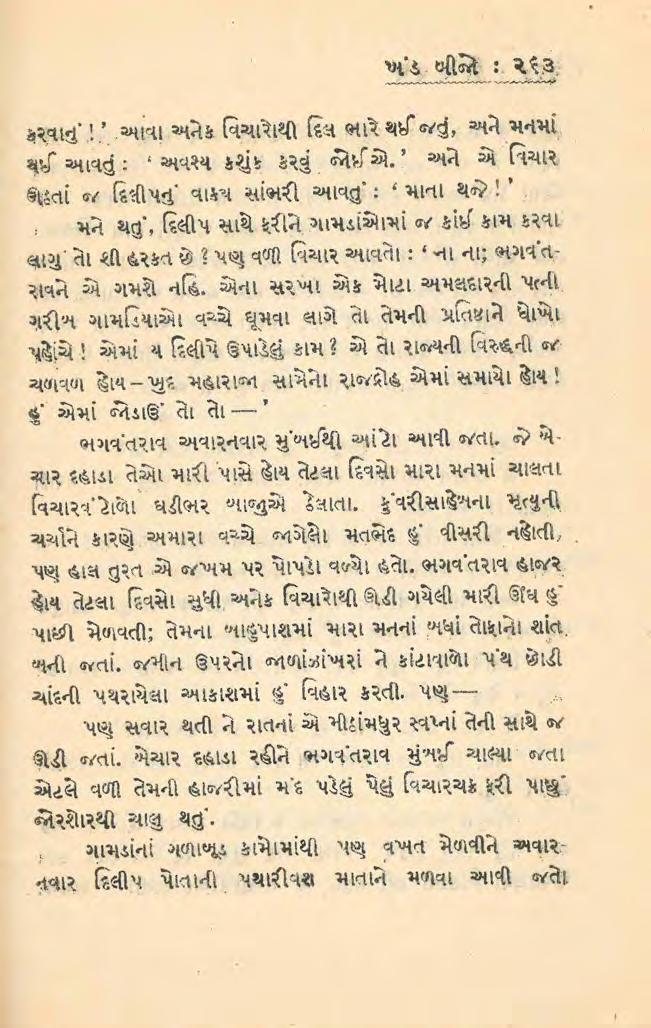 ખંડ બીજો : ૨૬૩
કરવાનું !’ આવા અનેક વિચારોથી દિલ ભારે થઈ જતું, અને મનમાં
થઈ આવતું : ‘ અવશ્ય કશુંક કરવું જોઈએ.’ અને એ વિચાર
ઊઠતાં જ દિલીપનું વાક્ય સાંભરી આવતું : ‘ માતા થજે ! ’
મને થતું, દિલીપ સાથે ફરીને ગામડાંઓમાં જ કાંઈ કામ કરવા
લાગુ તો શી હરકત છે ? પણ વળી વિચાર આવતો : ‘ ના ના; ભગવંત-
રાવને એ ગમશે નહિ. એના સરખા એક મોટા અમલદારની પત્ની
ગરીબ ગામડિયાઓ વચ્ચે ઘૂમવા લાગે તો તેમની પ્રતિષ્ઠાને ધોખો
પહોંચે ! એમાં ય દિલીપે ઉપાડેલું કામ ? એ તો રાજ્યની વિરુદ્ધની જ
ચળવળ હોય – ખુદ મહારાજા સામેનો રાજદ્રોહ એમાં સમાયો હોય !
હું એમાં જોડાઉં તો તો — ’
ભગવંતરાવ અવારનવાર મુંબઈથી આંટો આવી જતા. જે બે-
ચાર દહાડા તેઓ મારી પાસે હોય તેટલા દિવસો મારા મનમાં ચાલતા
વિચારવંટોળો ઘડીભર બાજુએ ઠેલાતા. કુંવરીસાહેબના મૃત્યુની
ચર્ચાને કારણે અમારા વચ્ચે જાગેલો મતભેદ હું વીસરી નહોતી,
પણ હાલ તુરત એ જખમ પર પોપડો વળ્યો હતો. ભગવંતરાવ હાજર
હોય તેટલા દિવસો સુધી અનેક વિચારોથી ઊડી ગયેલી મારી ઊંઘ હું
પાછી મેળવતી; તેમના બાહુપાશમાં મારા મનનાં બધાં તોફાનો શાંત
બની જતાં. જમીન ઉપરનો જાળાંઝાંખરાં ને કાંટાવાળો પંથ છોડી
ચાંદની પથરાયેલા આકાશમાં હું વિહાર કરતી. પણ —
પણ સવાર થતી ને રાતનાં એ મીઠાંમધુર સ્વપ્નાં તેની સાથે જ
ઊડી જતાં. બેચાર દહાડા રહીને ભગવંતરાવ મુંબઈ ચાલ્યા જતા
એટલે વળી તેમની હાજરીમાં મંદ પડેલું પેલું વિચારચક્ર ફરી પાછું
જોરશોરથી ચાલુ થતું.
ગામડાંનાં ગળાબૂડ કામોમાંથી પણ વખત મેળવીને અવાર-
નવાર દિલીપ પોતાની પથારીવશ માતાને મળવા આવી જતો